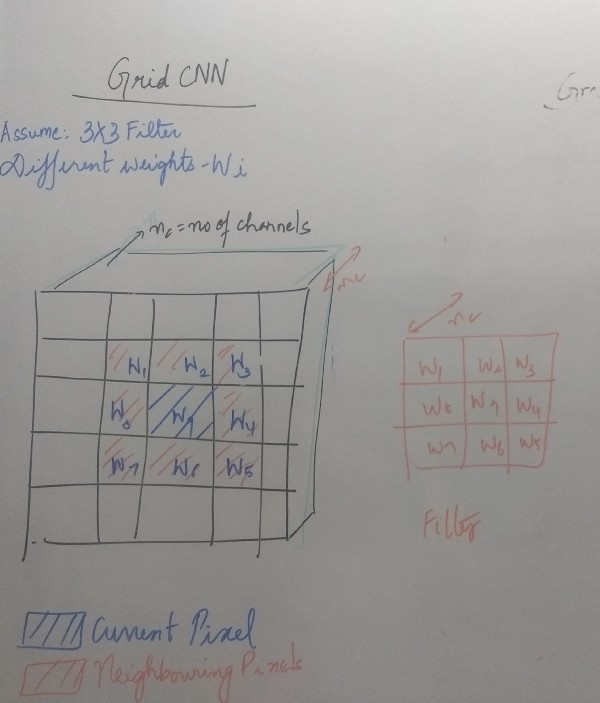 Grid CNN
Assume: 3X3 Filter
Different weights - Wi
nc = no of channels
nc
W1 W2 W3
W8 W9 W4
W7 W6 W5
nc
W1 W2 W3
W8 W9 W4
W7 W6 W5
Filter
Current Pixel
Neighbouring Pixels